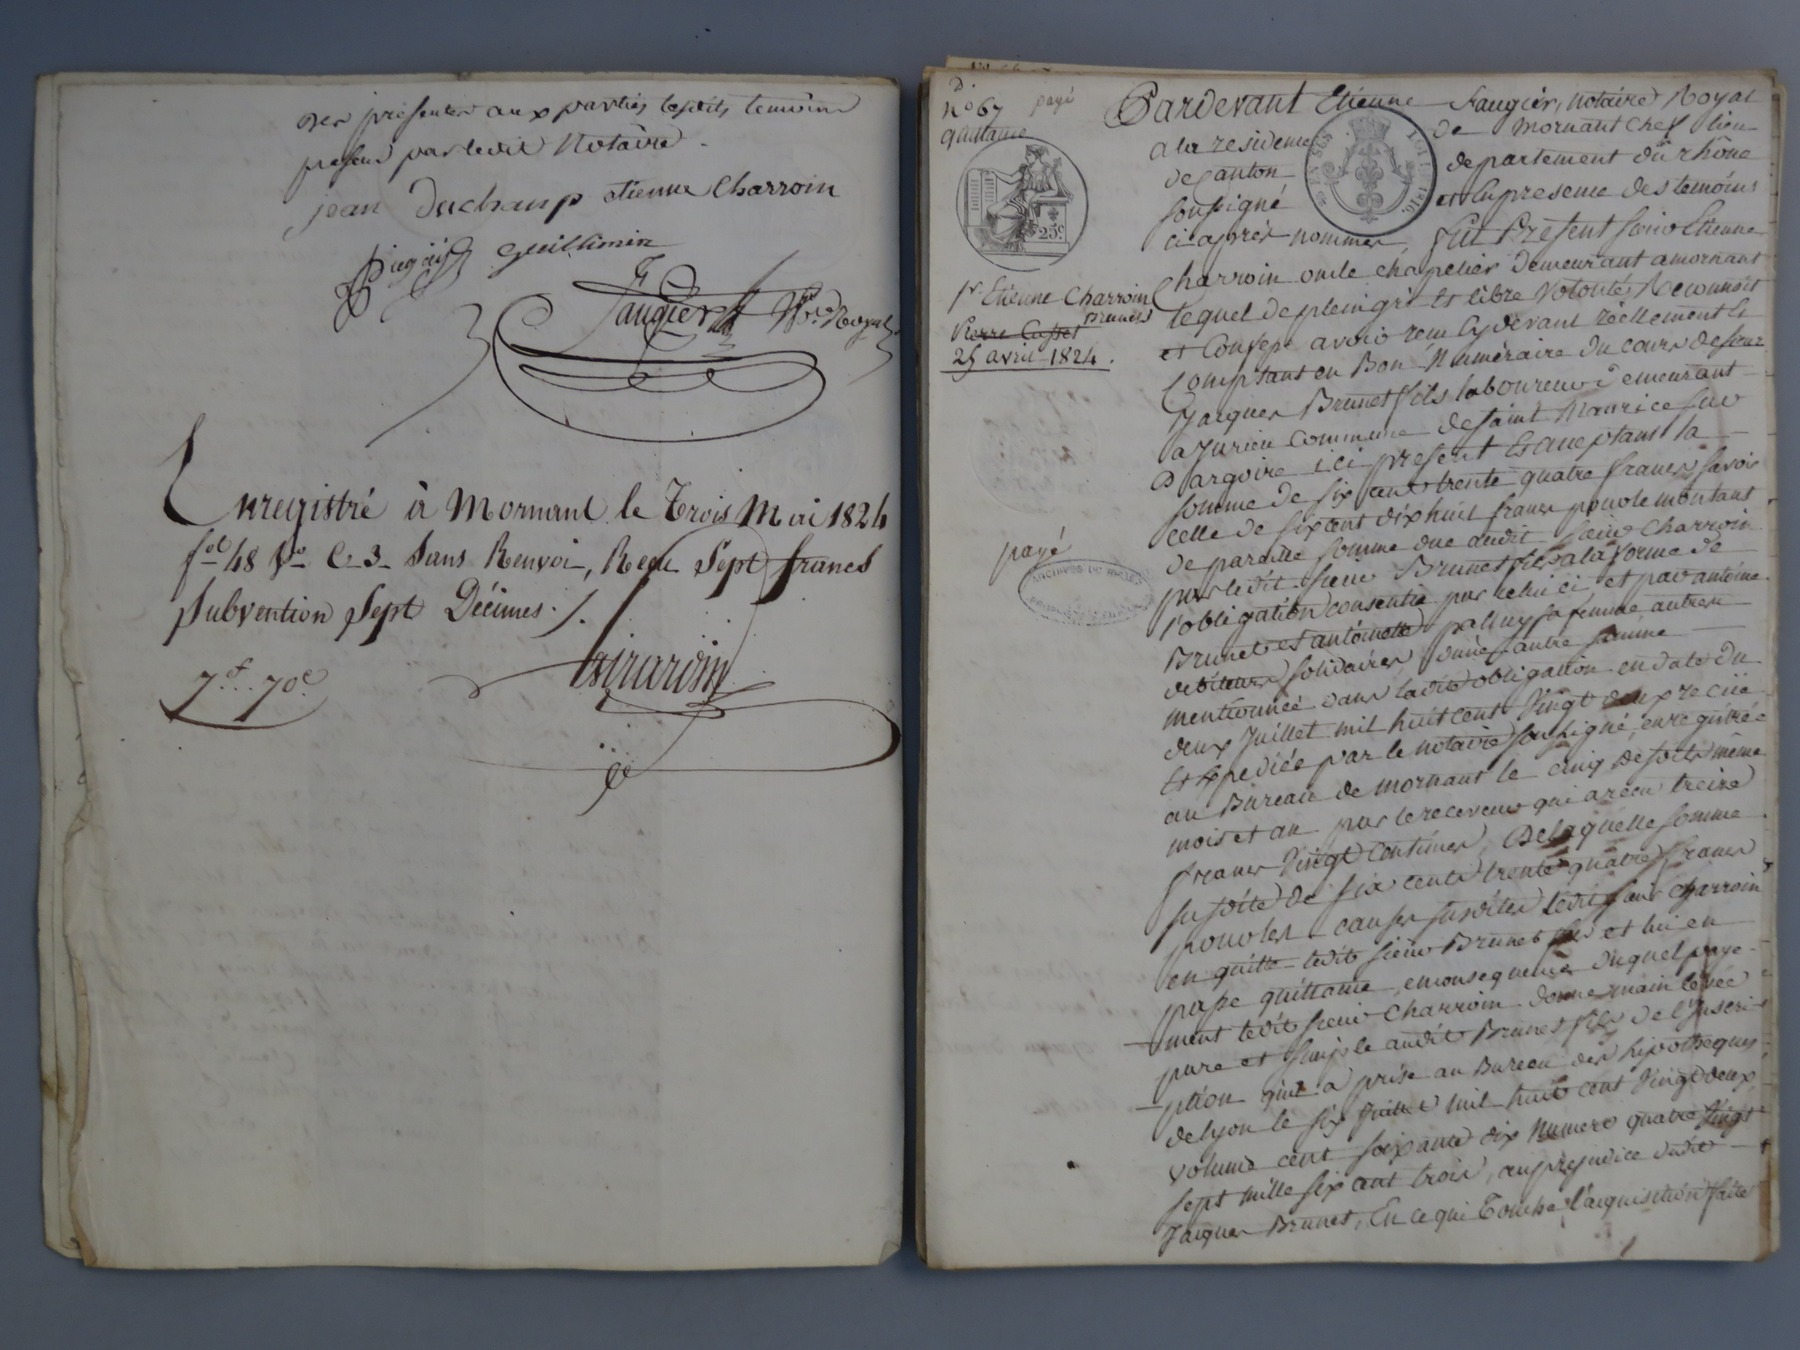 des presentes aux parties lesdits temoins
presens par ledit Notaire.
jean Duchamp etienne Charroin
Guillimin
Faugier Nre Royal
Enregistré à Mornant le Trois Mai 1824
fol 48 Vo C. 3. Sans Renvoi, Reçu Sept francs
Subvention Sept Décimes.
Girardin
7f.. 70c
No 67 payé
quittance
25c.
Sr Etienne Charroin
Brunets
Pierre Cusset
25 avril 1824.
payé
ARCHIVES DU RHÔNE
Pardevant Etienne Faugier, notaire Royal
a la residence de Mornant chef lieu
de Canton departement du rhône
soussigné et En presence des temoins
ci après nommés, fut Present sieur Etienne
Charroin oncle chapelier demeurant a mornant
lequel de plein gré et libre Volonté, Reconnoit
et Confesse avoir reçu Cy devant réellement Et
Comptant en Bon Numéraire du cours de sieur
Jacques Brunet fils laboureur demeurant
a Jurieu Commune de saint Maurice sur
Dargoire ici present Et acceptant la
somme de six cent trente quatre francs savoir
celle de six cent dix huit francs pour le montant
de pareille somme due audit sieur Charroin
par ledit sieur Brunet fils a la forme de
l'obligation consentie par celui ci et par antoine
Brunet et antoinette palluy sa femme autres
debiteurs solidaires d'une autre somme
mentionnée dans ladite obligation en date du
deux Juillet mil huit cent Vingt deux reçue
Et Expediée par le notaire soussigné, enregistrée
au Bureau de mornant le cinq desdits même
mois et an par le receveur qui a reçu treize
francs Vingt Centimes, De laquelle somme
susdite de six cents trente quatre francs
pour les causes susdites ledit sieur Charroin
en quitte ledit sieur Brunet fils et lui en
passe quittance, en consequence duquel paye-
ment ledit sieur Charroin donne main levée
pure et simple audit Brunet fils de l'Inscri-
ption qu'il a prise au Bureau des hipotheques
de lyon le six Juillet mil huit cent Vingt deux
volume cent soixante dix Numero quatre Vingt
sept mille six cent trois, au prejudice dudit
Jacques Brunet, En ce qui Touche l'acquisition faite